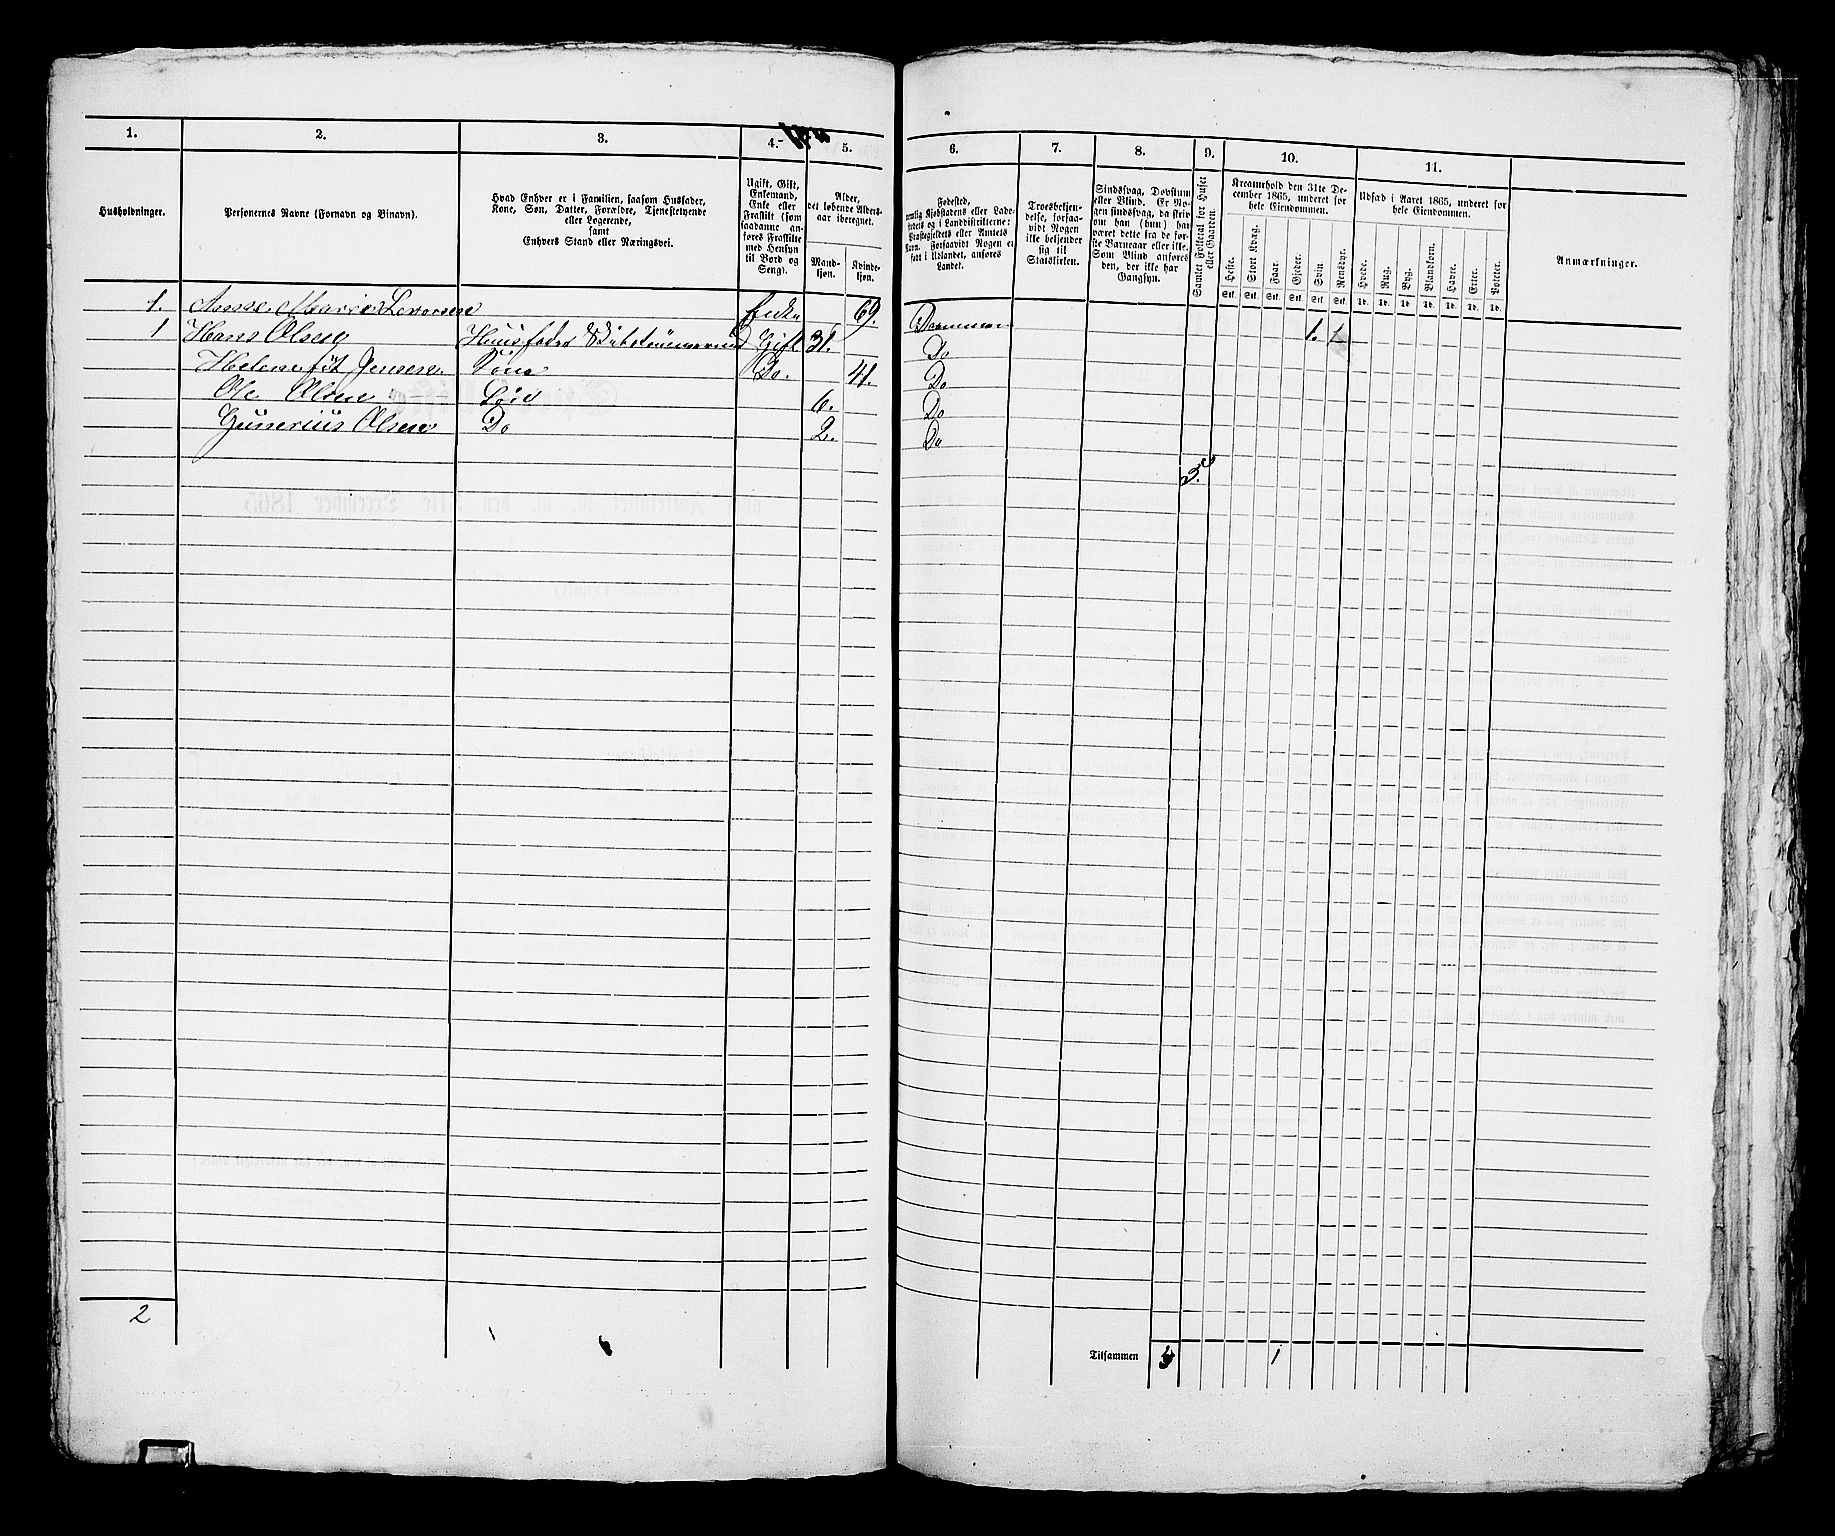 1.
2.
3.
4.
5.
Husholdninger.
Personernes Navne (Fornavn og Binavn).
Hvad Enhver er i Familien, saasom Husfader,
Kone, Søn, Datter, Forældre, Tjenestetyende
eller Logerende,
samt
Enhvers Stand eller Næringsvei.
Ugift, Gift,
Enkemand,
Enke eller
Fraskilt (som
saadanne an-
føres Fraskilte
med Hensyn
til Bord og
Seng).
Alder,
det løbende Alders-
aar iberegnet.
Mand-
kjøn.
Kvinde-
kjøn.
1. Anne Marie Levorsen Enke 69.
1 Hans Olsen Huusfader Gift 31.
Helene føt Jensen Kone Do. 41.
Ole Olsen Søn 6.
Gunerius Olsen Do 2.
2
6.
7.
8.
9.
10.
11.
Fødested,
nemlig Kjøbstadens eller Lade-
stedets og i Landdistrikterne:
Præstegjeldets eller Amtets
Navn. Forsaavidt Nogen er
født i Udlandet, anføres
Landet.
Troesbekjen-
delse, forsaa-
vidt Nogen
ikke bekjender
sig til
Statskirken.
Sindssvag, Døvstum
eller Blind. Er No-
gen sindssvag, da skriv
om han (hun) har
været dette fra de før-
ste Barneaar eller ikke.
Som Blind anføres
den, der ikke har
Gangsyn.
Samlet Folketal for Huset
eller Gaarden.
Kreaturhold den 31te De-
cember 1865, underet for
hele Eiendommen.
Heste.
Stort Kvæg.
Faar.
Gjeder.
Svin
Rensdyr.
Stk. Stk. Stk. Stk. Stk. Stk.
Udsæd i Aaret 1865, underet for
hele Eiendommen.
Hvede.
Rug.
Byg.
Blandkorn.
Havre.
Erter.
Poteter.
Td. Td. Td. Td. Td. Td. Td.
Anmærkninger.
Drammen
Do 1. 1
Do
Do
Do
5.
Tilsammen 5 1